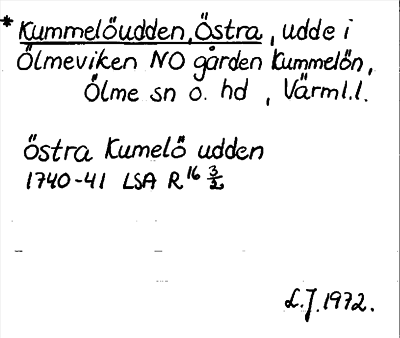 * Kummelöudden, Östra, udde i
Ölmeviken NO gården Kummelön,
Ölme sn o. hd, Värml.l.
Östra Kumelö udden
1740-41 LSA R 16 3/2
L.J. 1972.